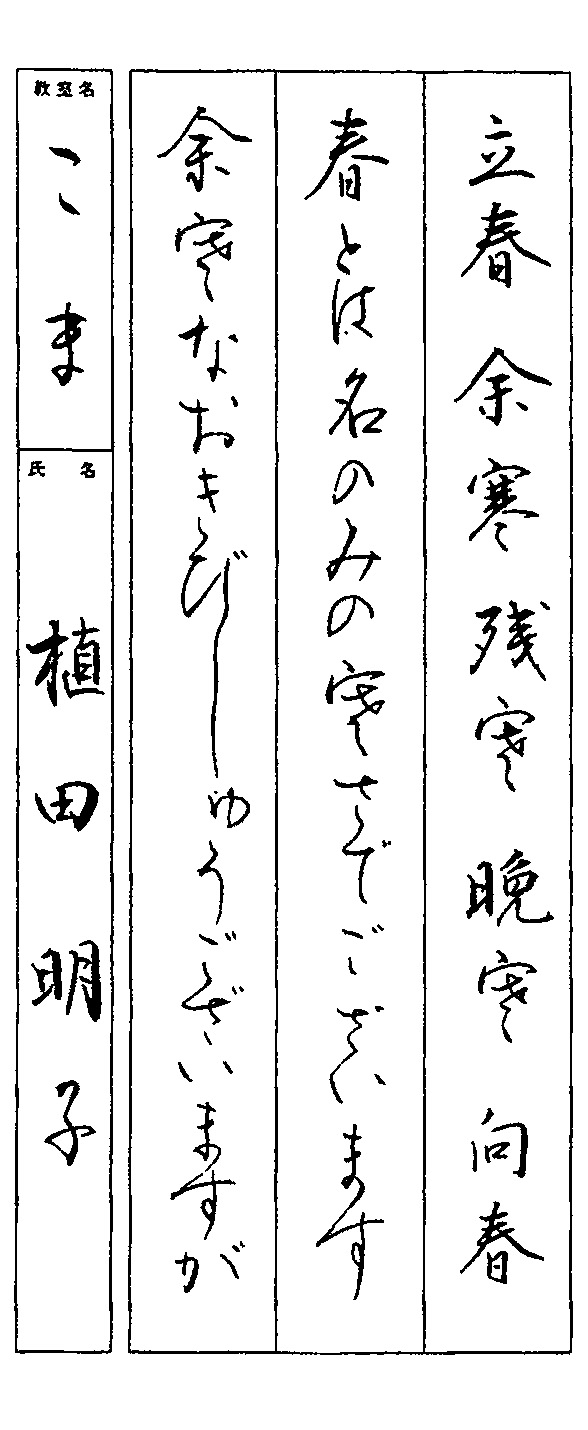 立春 余寒 残寒 晩寒 向春
春とは名のみの寒さでございます
余寒なおきびしゅうございますが
教室名
こま
氏名
植田明子